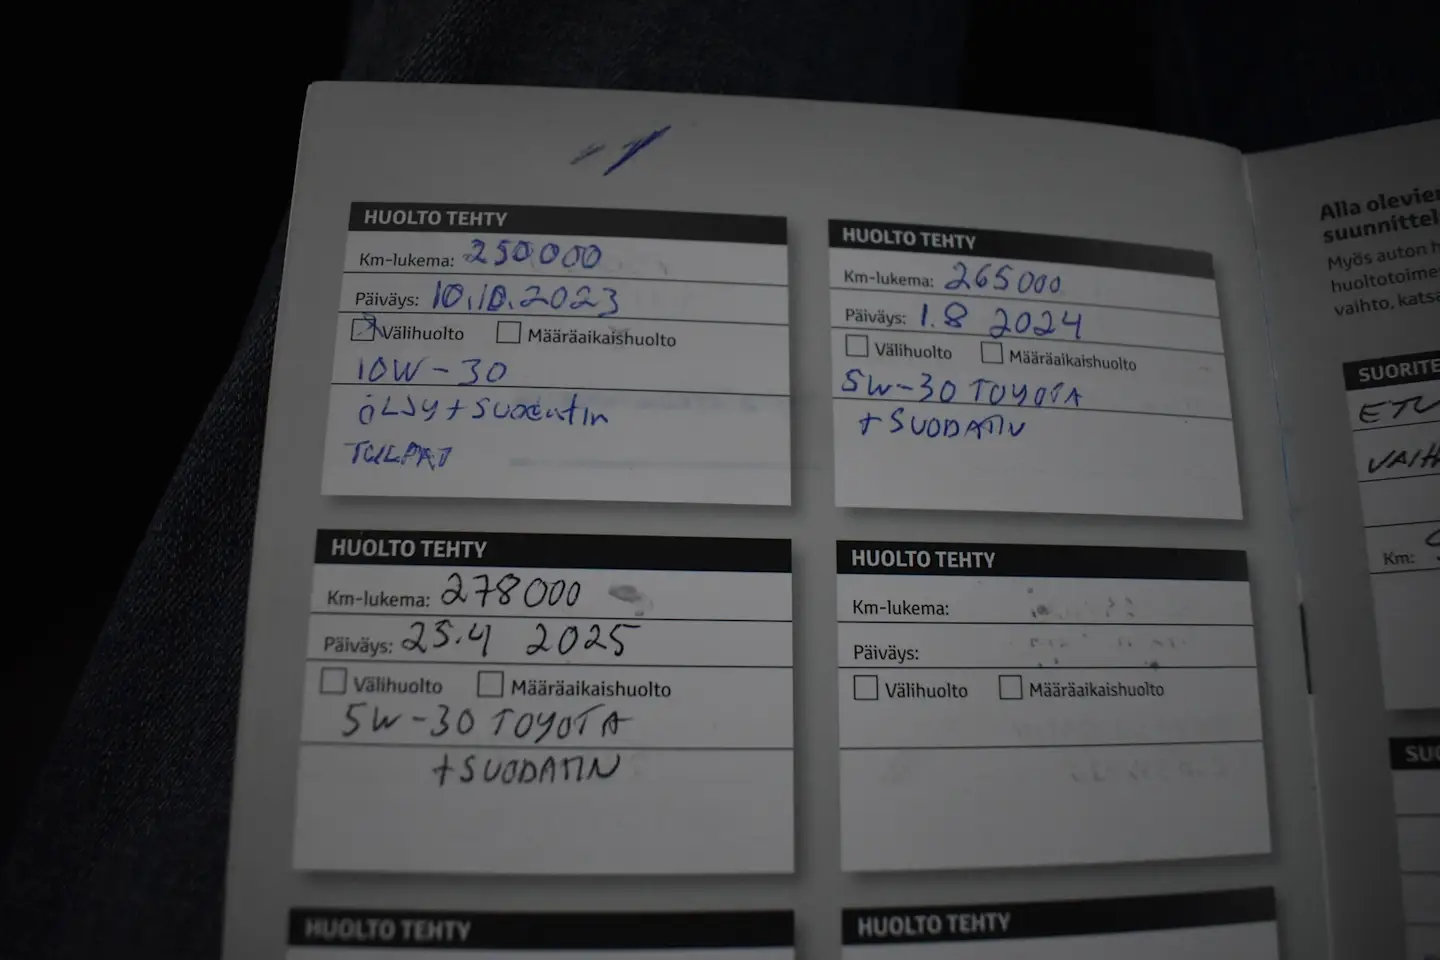 HUOLTO TEHTY
Km-lukema: 250000
Päiväys: 10.10.2023
Välihuolto Määräaikaishuolto
10W-30
öLJy + SUODATIN
TULPAT
HUOLTO TEHTY
Km-lukema: 265000
Päiväys: 1.8 2024
Välihuolto Määräaikaishuolto
5W-30 TOYOTA
+ SUODATIN
HUOLTO TEHTY
Km-lukema: 278000
Päiväys: 25.4 2025
Välihuolto Määräaikaishuolto
5W-30 TOYOTA
+ SUODATIN
HUOLTO TEHTY
Km-lukema:
Päiväys:
Välihuolto Määräaikaishuolto
HUOLTO TEHTY
HUOLTO TEHTY
Alla olevien
suunnittel
Myös auton h
huoltotoime
vaihto, katsa
SUORITE
ETU
VAIH
Km:
SUO